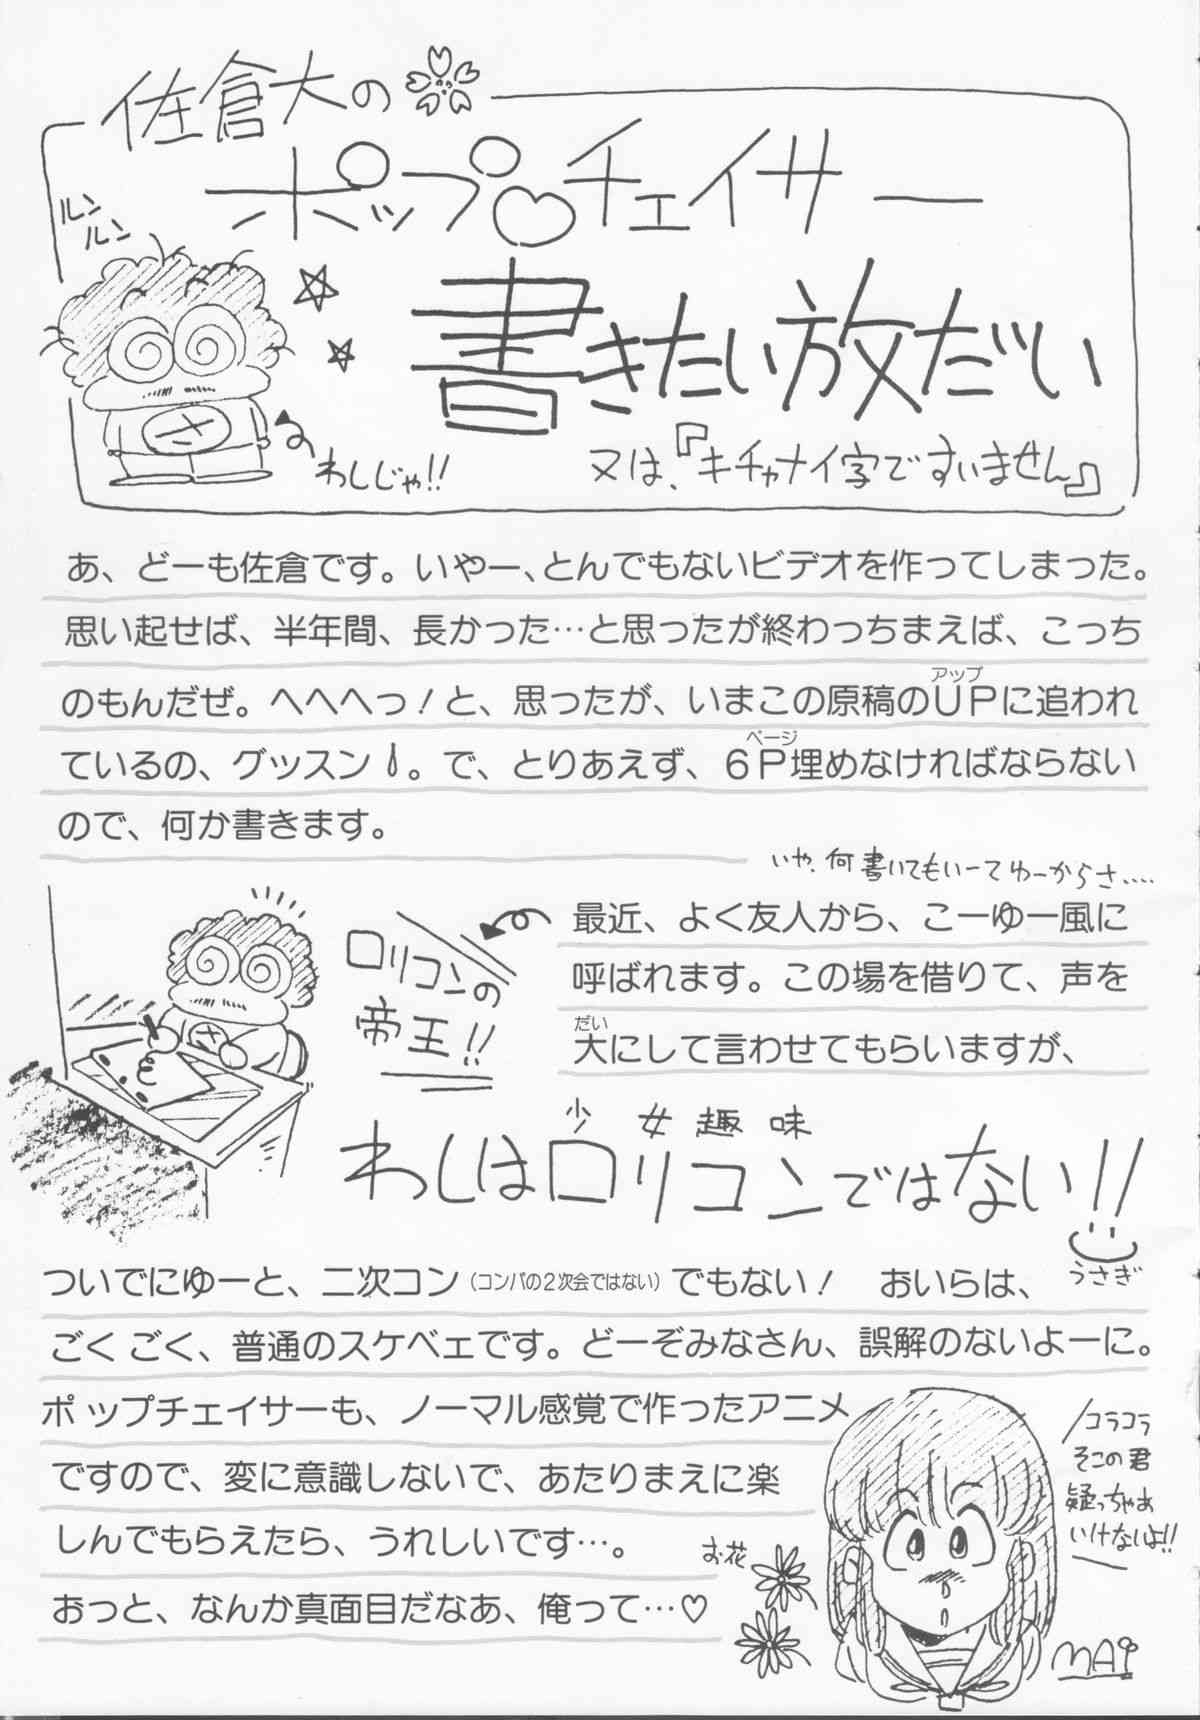 佐倉大の
ポップ♡チェイサー
ルン
ルン
書きたい放だい
わしじゃ!!
又は、『キチャナイ字ですいません』
あ、どーも佐倉です。いやー、とんでもないビデオを作ってしまった。
思い起せば、半年間、長かった…と思ったが終わっちまえば、こっち
のもんだぜ。へへへっ！と、思ったが、いまこの原稿のUPに追われ
アップ
ているの、グッスン。で、とりあえず、6P埋めなければならない
ページ
ので、何か書きます。
いや、何書いてもいーてゆーからさ....
ロリコンの
帝王!!
最近、よく友人から、こーゆー風に
呼ばれます。この場を借りて、声を
大にして言わせてもらいますが、
だい
少女趣味
わしはロリコンではない!!
うさぎ
ついでにゆーと、二次コン（コンパの2次会ではない）でもない！　おいらは、
ごくごく、普通のスケベェです。どーぞみなさん、誤解のないよーに。
ポップチェイサーも、ノーマル感覚で作ったアニメ
ですので、変に意識しないで、あたりまえに楽
しんでもらえたら、うれしいです…。
おっと、なんか真面目だなあ、俺って…♡
お花
コラコラ
そこの君
疑っちゃあ
いけないよ!!
MAI